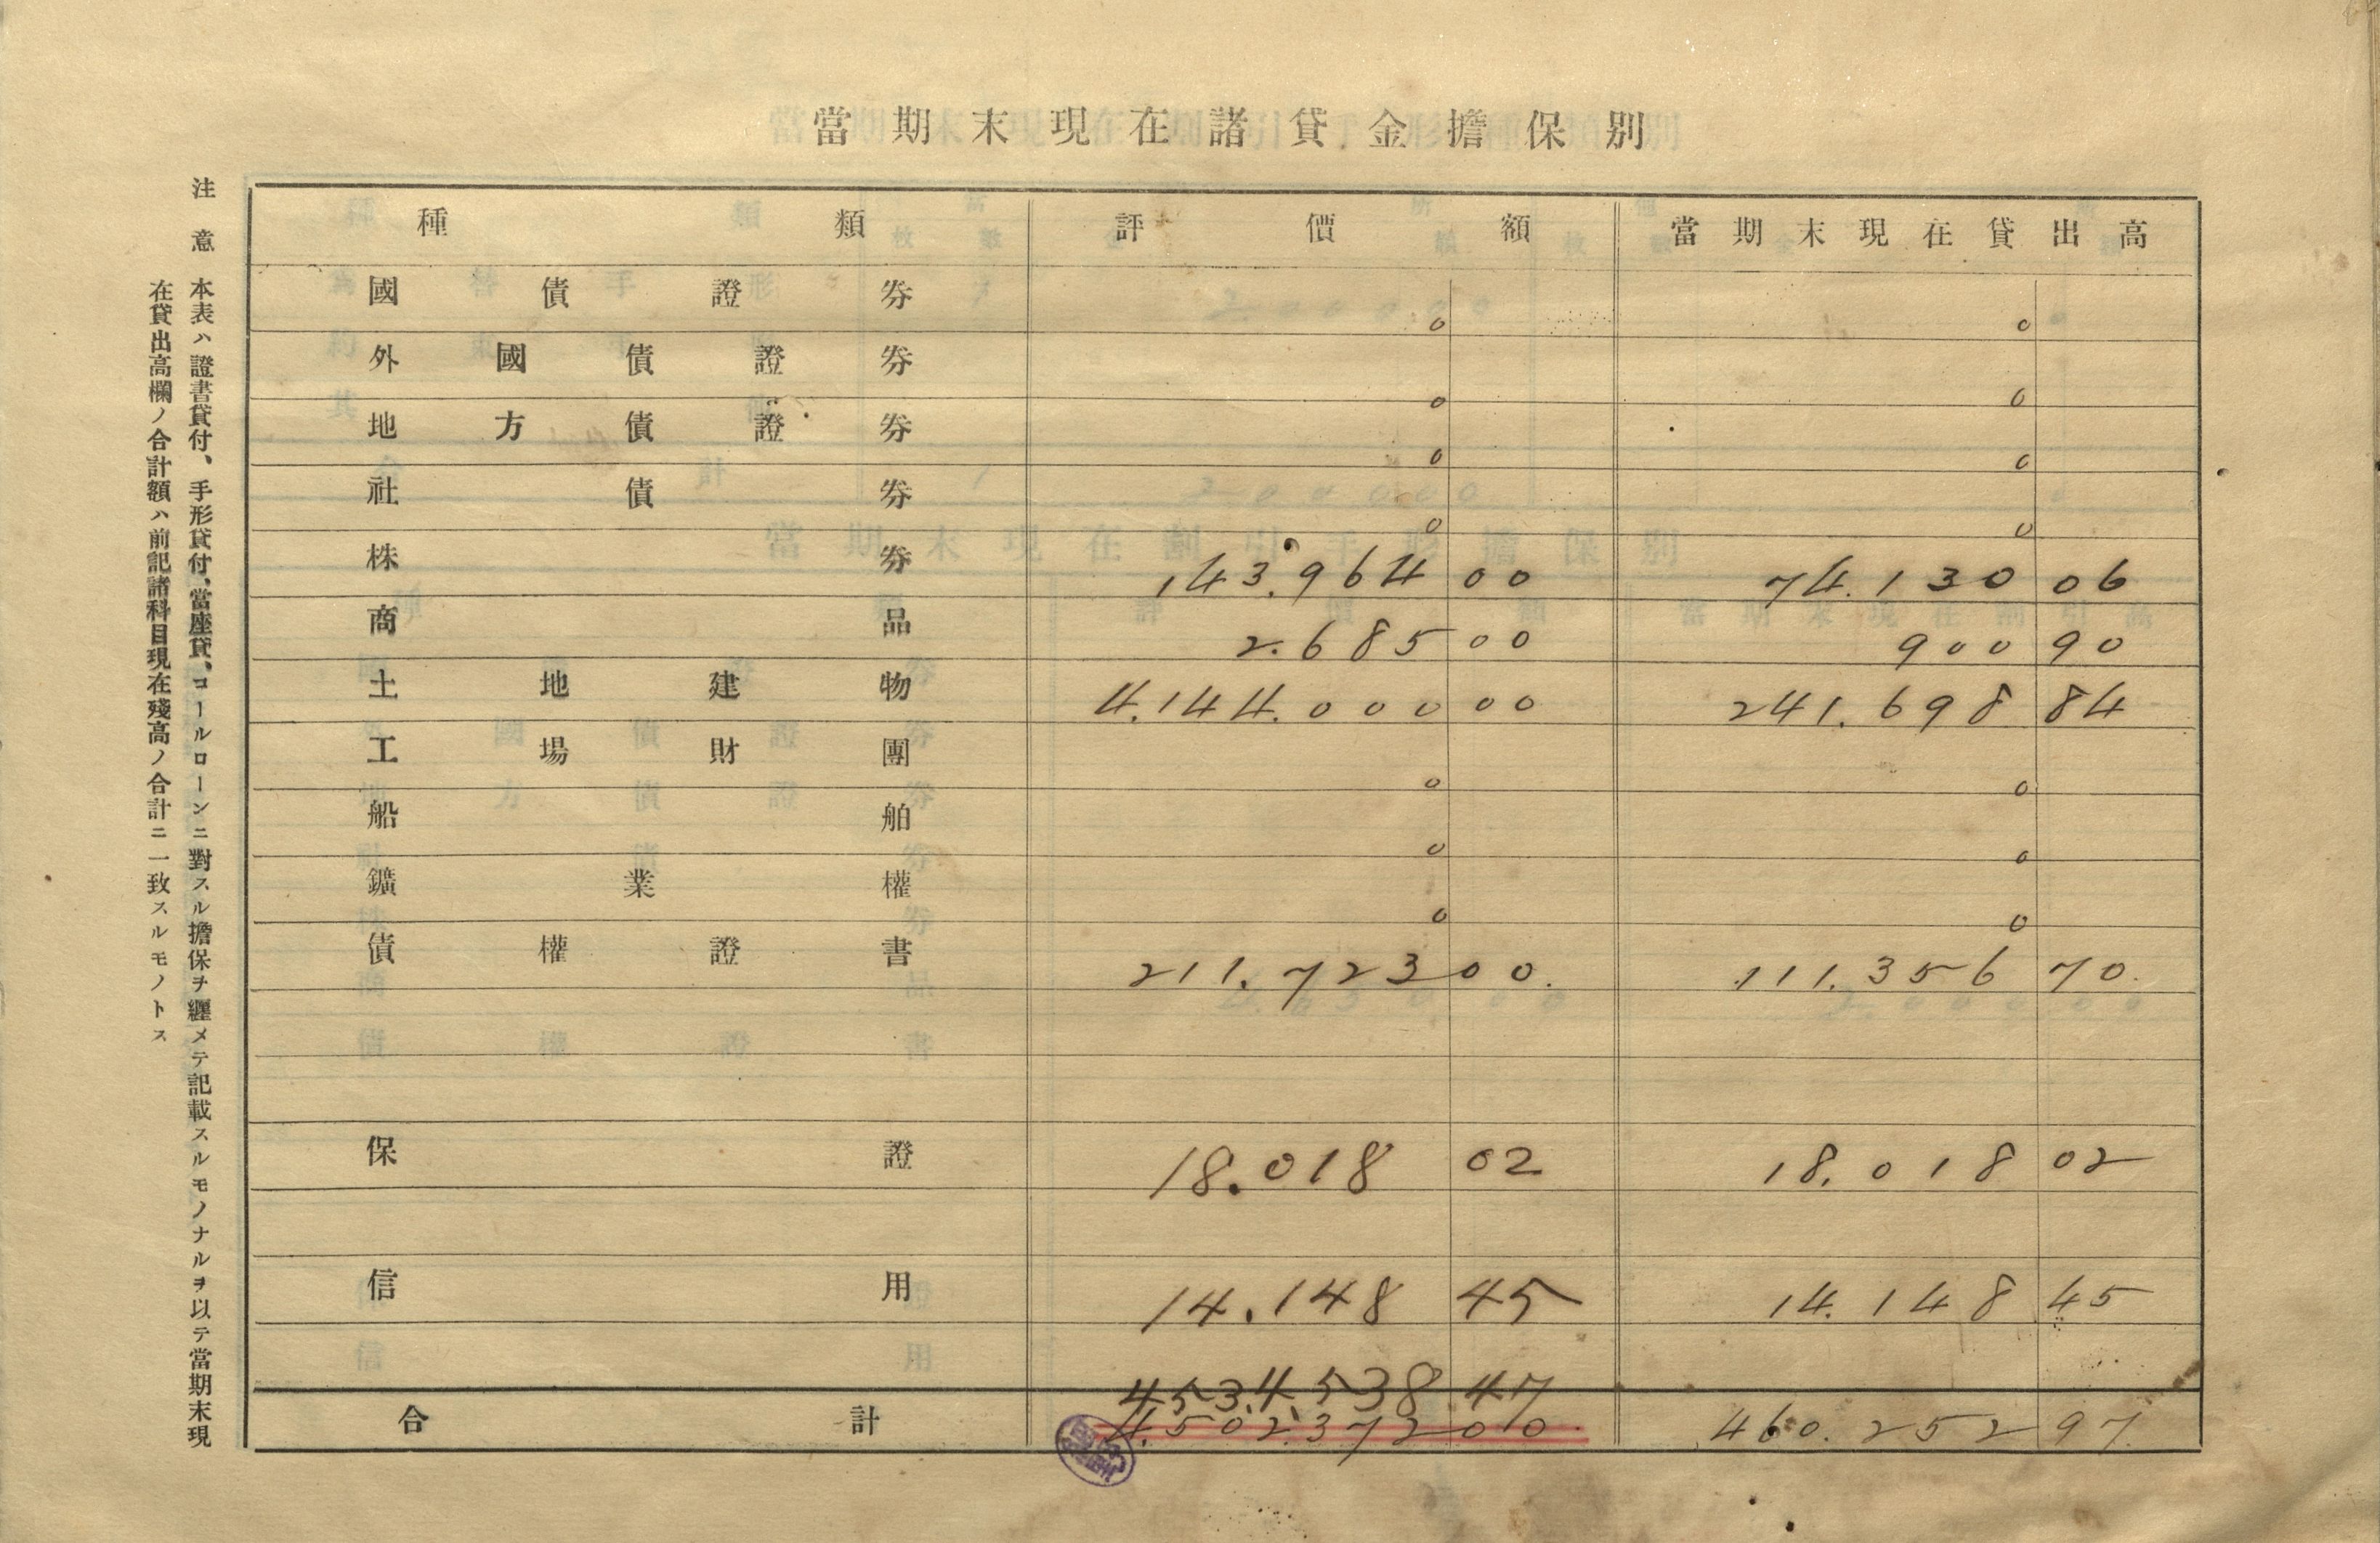 當期末現在諸貸金擔保別
種類 評價額 當期末現在貸出高
國債證券 0 0
外國債證券 0 0
地方債證券 0 0
社債券 0 0
株券 143.964 00 74.130 06
商品 2.685 00 900 90
土地建物 4.144.000 00 241.698 84
工場財團 0 0
船舶 0 0
鑛業權 0 0
債權證書 211.723 00 111.356 70
保證 18.018 02 18.018 02
信用 14.148 45 14.148 45
4.534.538 47
合計 4.502.372 00 460.252 97
注意 本表ハ證書貸付、手形貸付、當座貸、コールローンニ對スル擔保ヲ纒メテ記載スルモノナルヲ以テ當期末現
在貸出高欄ノ合計額ハ前記諸科目現在殘高ノ合計ニ一致スルモノトス